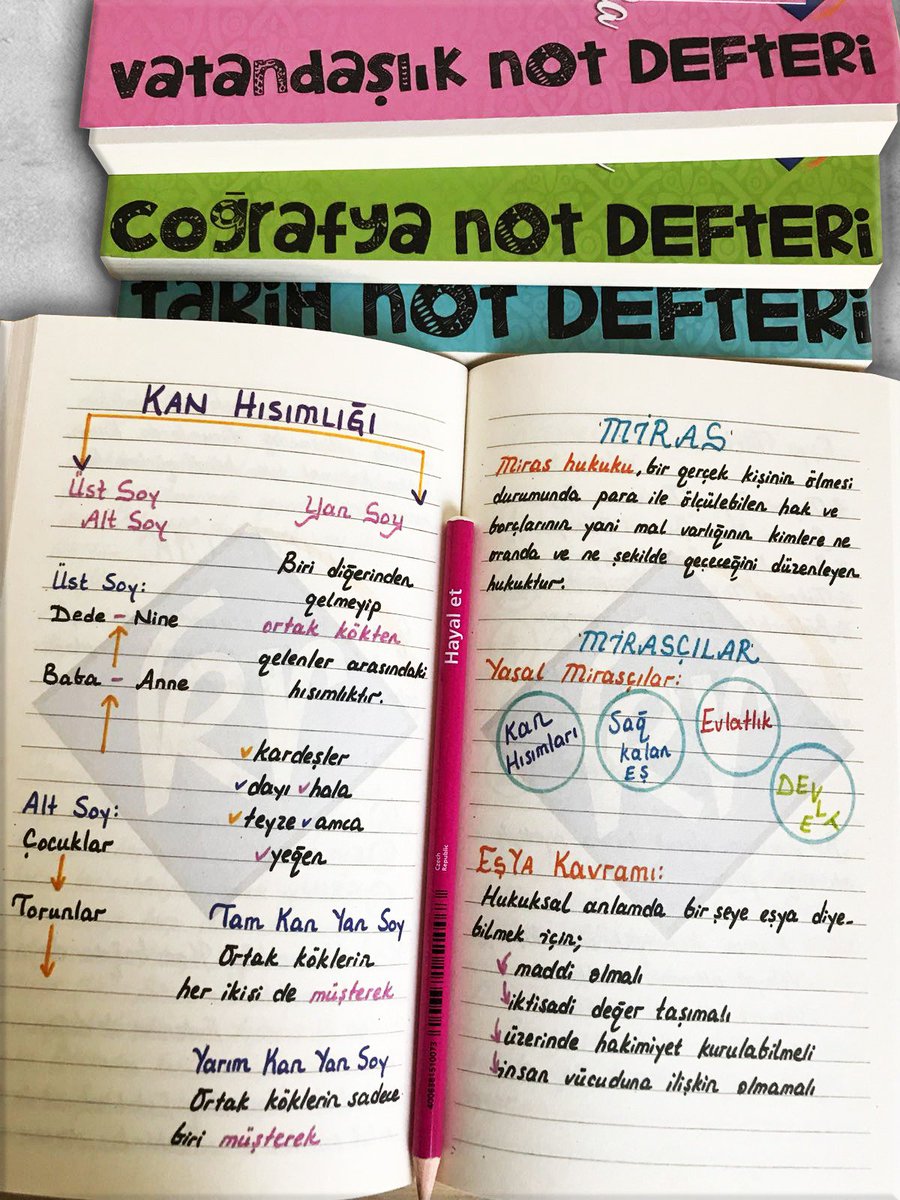 vatandaşlık not DEFTERİ
Coğrafya not DEFTERİ
tarih not DEFTERİ
KAN HISIMLIĞI
Üst Soy
Alt Soy
Yan Soy
Üst Soy:
Dede - Nine
Baba - Anne
Alt Soy:
Çocuklar
Torunlar
Biri diğerinden
gelmeyip
ortak kökten
gelenler arasındaki
hısımlıktır.
kardeşler
dayı hala
teyze amca
yeğen
Tam Kan Yan Soy
Ortak köklerin
her ikisi de müşterek
Yarım Kan Yan Soy
Ortak köklerin sadece
biri müşterek
Hayal et
Czech
Republic
4006381510073
MİRAS
Miras hukuku, bir gerçek kişinin ölmesi
durumunda para ile ölçülebilen hak ve
borçlarının yani mal varlığının kimlere ne
oranda ve ne şekilde geçeceğini düzenleyen
hukuktur.
MİRASÇILAR
Yasal Mirasçılar:
Kan
Hısımları
Sağ
kalan
EŞ
Evlatlık
DEVLET
EŞYA Kavramı:
Hukuksal anlamda bir şeye eşya diye-
bilmek için;
maddi olmalı
iktisadi değer taşımalı
üzerinde hakimiyet kurulabilmeli
insan vücuduna ilişkin olmamalı